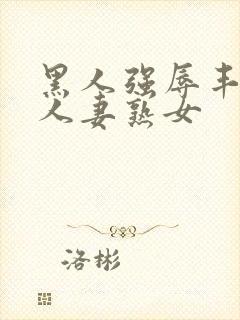 黑人强辱丰
人妻熟女
洛彬